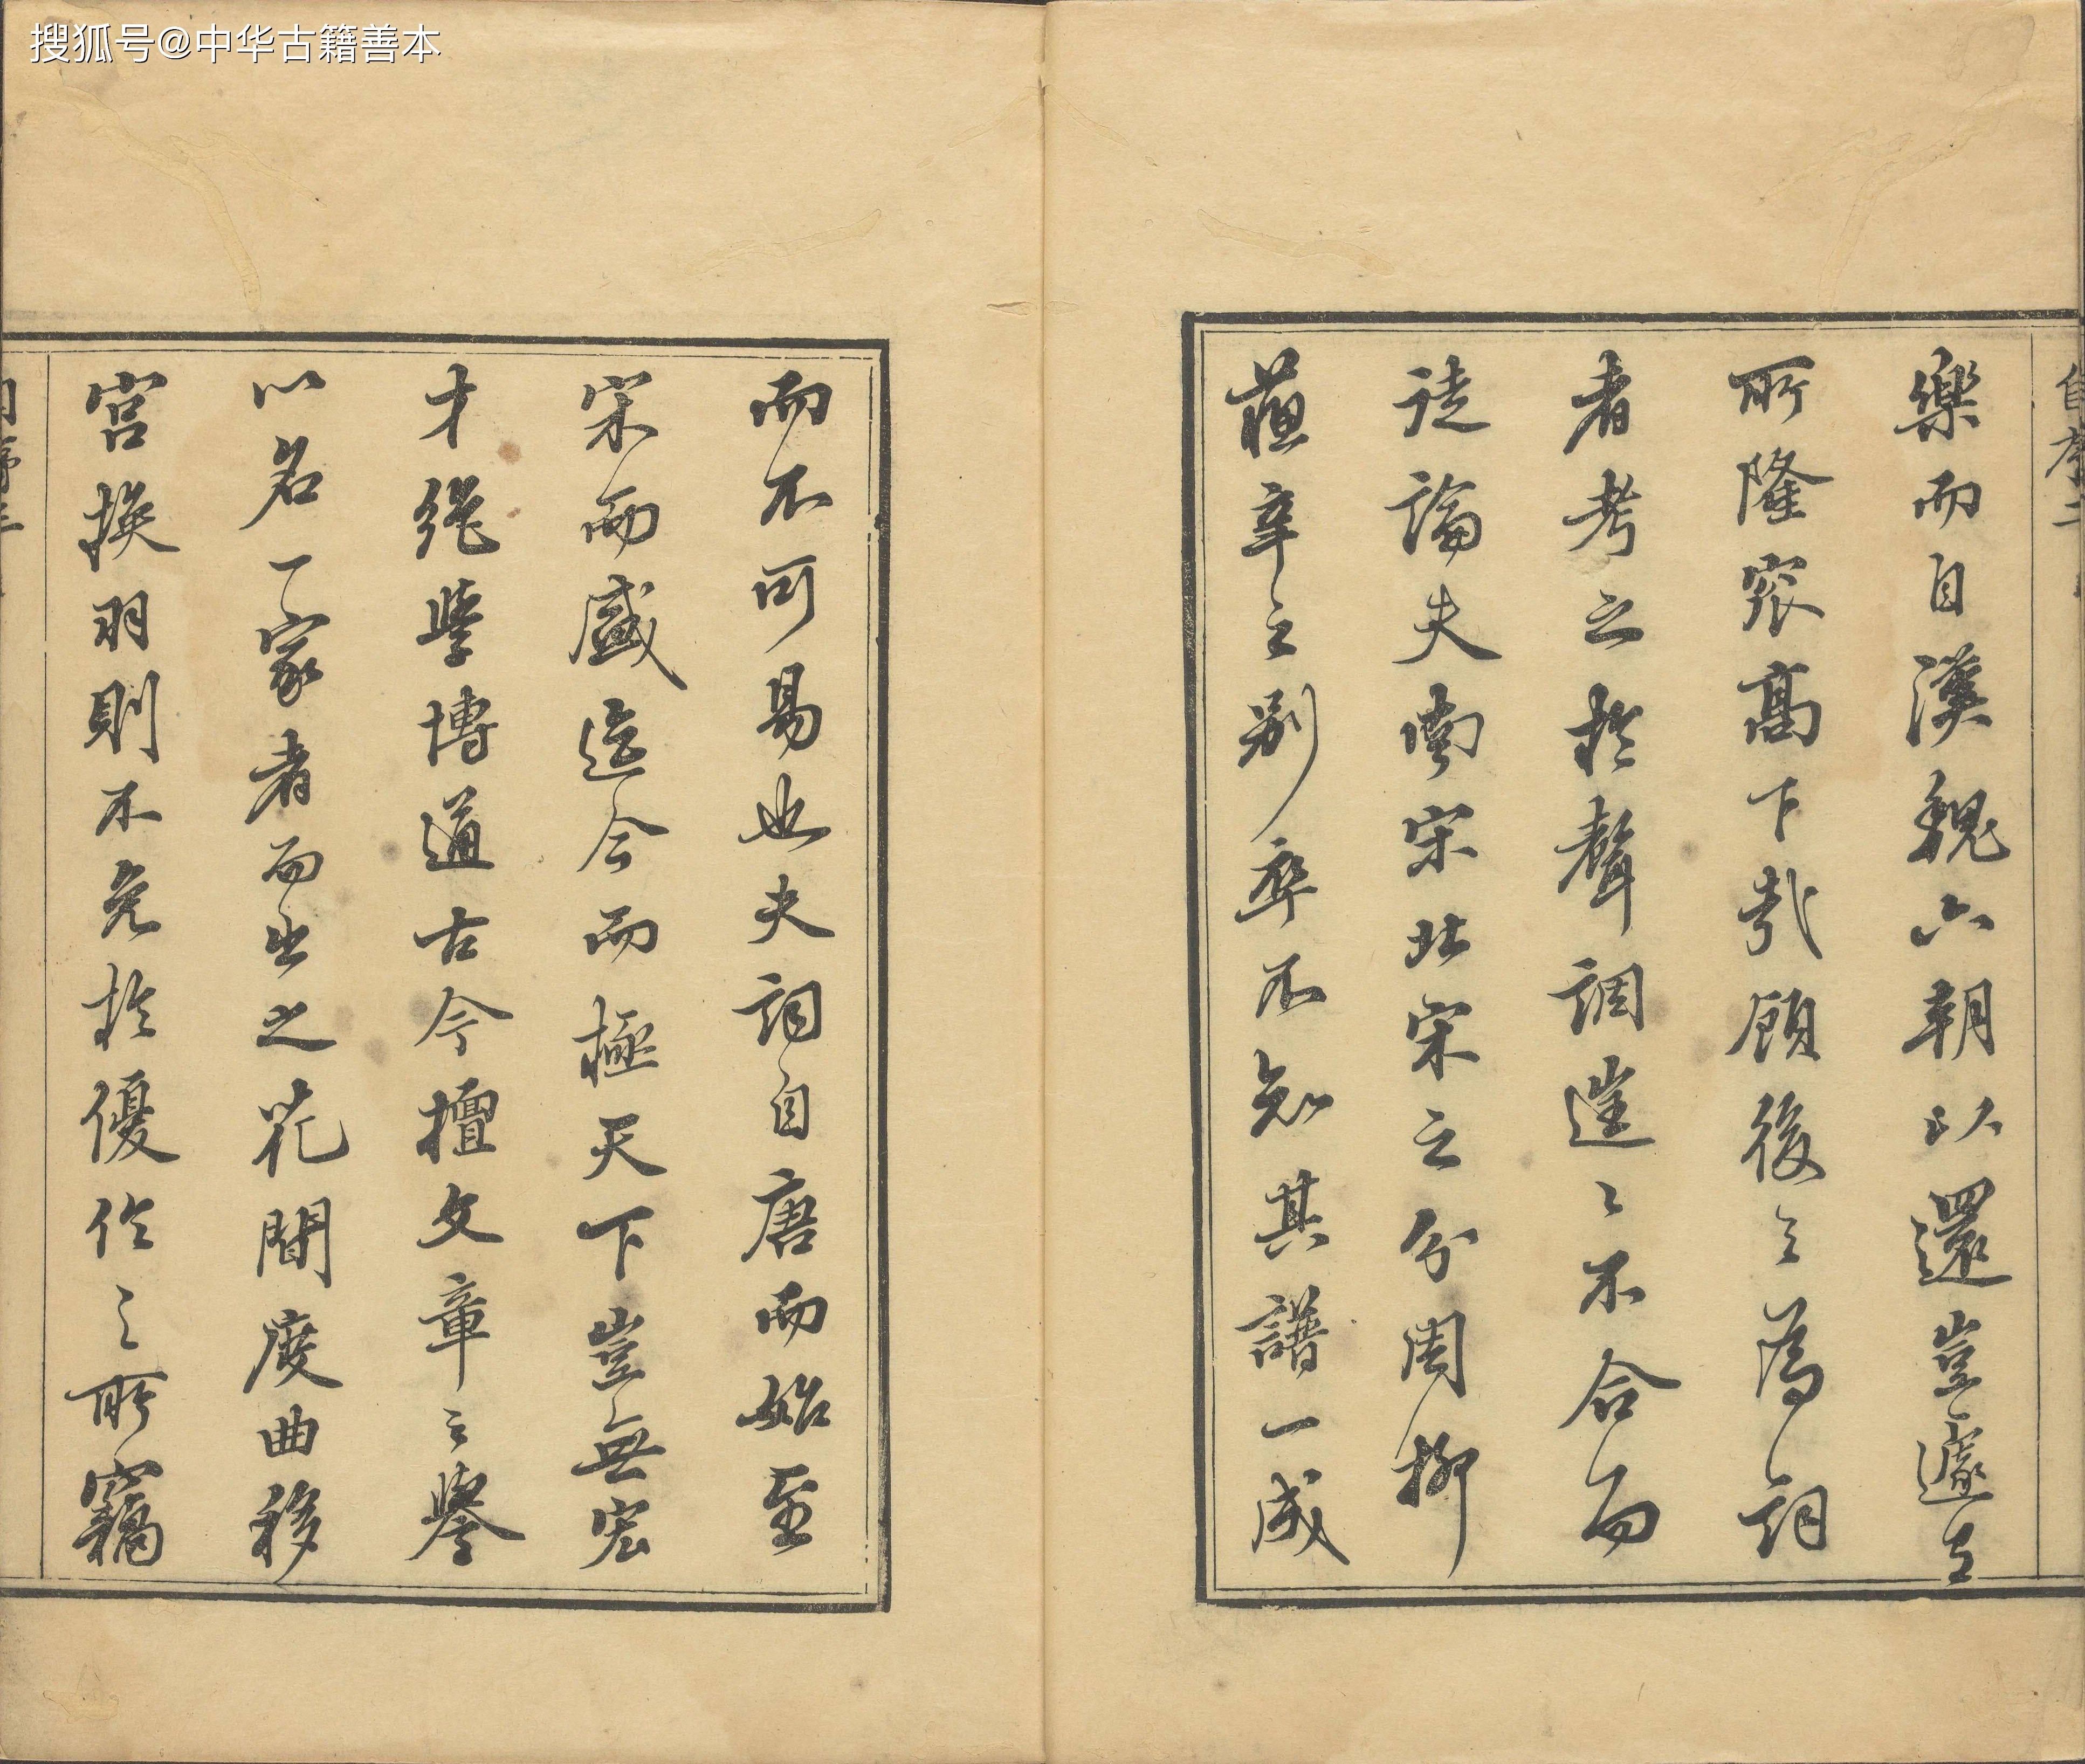 搜狐号@中华古籍善本
自序二
樂而自漢魏六朝以還豈遽有
所隆窊高下哉顧後之為詞
者考之於聲調往〻不合而
徒論夫南宋北宋之分周柳
蘇辛之別卒不知其譜一成
而不可易也夫詞自唐而始至
宋而盛迄今而極天下豈無宏
才絕學博通古今擅文章之譽
以名一家者而出之花間度曲移
宮換羽則不免於優伶之所竊
自序三